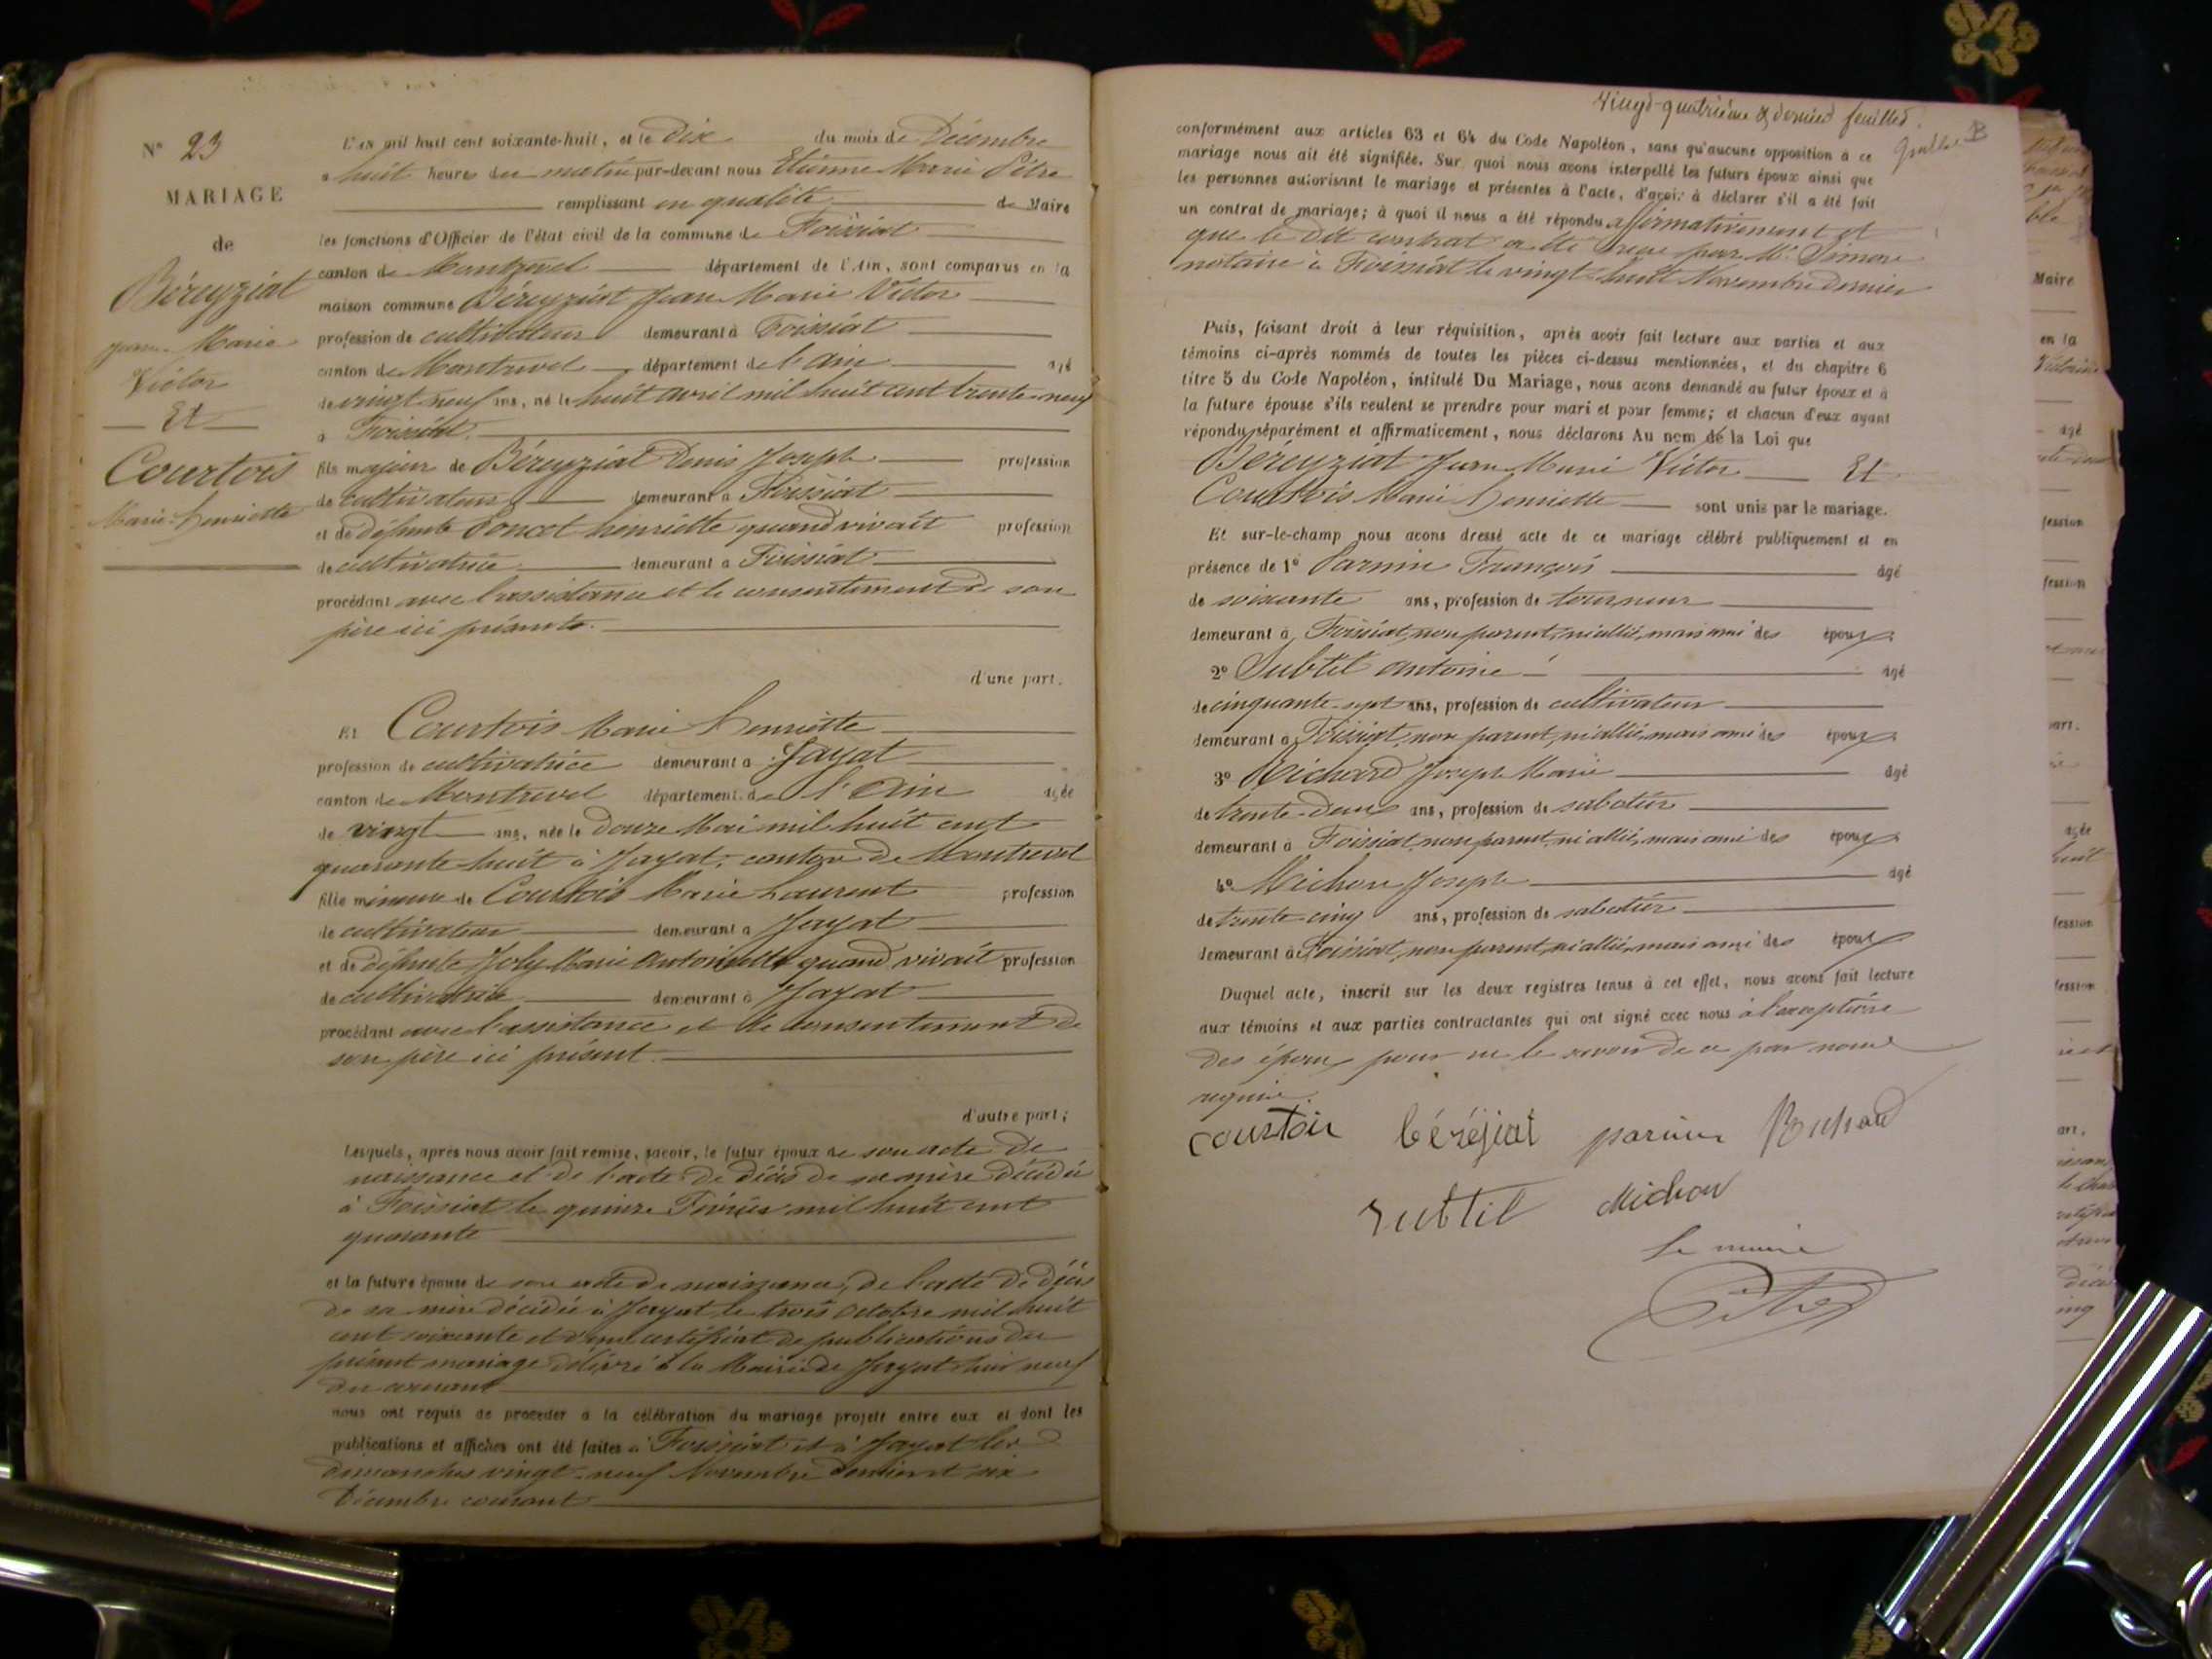 N° 23
MARIAGE
de
Béreyziat
Jean Marie
Victor
Et
Courtois
Marie henriette
L'an mil huit cent soixante-huit, et le Dix du mois de Décembre
à huit heures du matin par-devant nous Etienne Marie Pitre
remplissant en qualité de Maire
les fonctions d'Officier de l'état civil de la commune de Foissiat
canton de Montrevel département de l'Ain, sont comparus en la
maison commune Béreyziat Jean Marie Victor
profession de cultivateur demeurant à Foissiat
canton de Montrevel département de l'ain agé
de vingt neuf ans, né le huit avril mil huit cent trente-neuf
à Foissiat
fils majeur de Béreyziat Denis Joseph profession
de cultivateur demeurant à Foissiat
et de défunte Poncet henriette quand vivait profession
de cultivatrice demeurant à Foissiat
procédant avec l'assistance et le consentement de son
père ici présents.
d'une part.
Et Courtois Marie henriette
profession de cultivatrice demeurant à Jayat
canton de Montrevel département de l'Ain agée
de vingt ans, née le douze Mai mil huit cent
quarante huit à Jayat, canton de Montrevel
fille mineure de Courtois Marie Laurent profession
de cultivateur demeurant à Jayat
et de défunte Joly Marie Antoinette quand vivait profession
de cultivatrice demeurant à Jayat
procédant avec l'assistance et le consentement de
son père ici présent.
d'autre part;
Lesquels, après nous avoir fait remise, savoir, le futur époux de son acte de
naissance et de l'acte de décès de sa mère décédée
à Foissiat le quinze Février mil huit cent
quarante
et la future épouse de son acte de naissance, de l'acte de décès
de sa mère décédée à Jayat le trois octobre mil huit
cent soixante et d'un certificat de publications du
présent mariage délivré à la Mairie de Jayat hier neuf
du courant
nous ont requis de procéder à la célébration du mariage projeté entre eux et dont les
publications et affiches ont été faites à Foissiat et à Jayat les
dimanches vingt-neuf Novembre dernier et six
Décembre courant
Vingt-quatrième & dernier feuillet.
conformément aux articles 63 et 64 du Code Napoléon, sans qu'aucune opposition à ce
mariage nous ait été signifiée. Sur quoi nous avons interpellé les futurs époux ainsi que
les personnes autorisant le mariage et présentes à l'acte, d'avoir à déclarer s'il a été fait
un contrat de mariage; à quoi il nous a été répondu affirmativement et
que le dit contrat a été reçu par Me Simon
notaire à Foissiat le vingt-huit Novembre dernier
Puis, faisant droit à leur réquisition, après avoir fait lecture aux parties et aux
témoins ci-après nommés de toutes les pièces ci-dessus mentionnées, et du chapitre 6
titre 5 du Code Napoléon, intitulé Du Mariage, nous avons demandé au futur époux et à
la future épouse s'ils veulent se prendre pour mari et pour femme; et chacun d'eux ayant
répondu séparément et affirmativement, nous déclarons Au nom de la Loi que
Béreyziat Jean Marie Victor Et
Courtois Marie henriette sont unis par le mariage.
Et sur-le-champ nous avons dressé acte de ce mariage célébré publiquement et en
présence de 1° Parnin François âgé
de soixante ans, profession de tourneur
demeurant à Foissiat, non parent, ni allié, mais ami des époux
2° Subtil Antoine âgé
de cinquante-sept ans, profession de cultivateur
demeurant à Foissiat, non parent, ni allié, mais ami des époux
3° Richard Joseph Marie âgé
de trente-deux ans, profession de sabotier
demeurant à Foissiat, non parent, ni allié, mais ami des époux
4° Michon Joseph âgé
de trente-cinq ans, profession de sabotier
demeurant à Foissiat, non parent, ni allié, mais ami des époux
Duquel acte, inscrit sur les deux registres tenus à cet effet, nous avons fait lecture
aux témoins et aux parties contractantes qui ont signé avec nous à l'exception
des époux pour ne le savoir de ce par nous
requis.
courtois béréziat parnin Richard
subtil Michon
Le maire
Pitre
Maire
en la
agé
fession
fession
part.
agée
huit
fession
fession